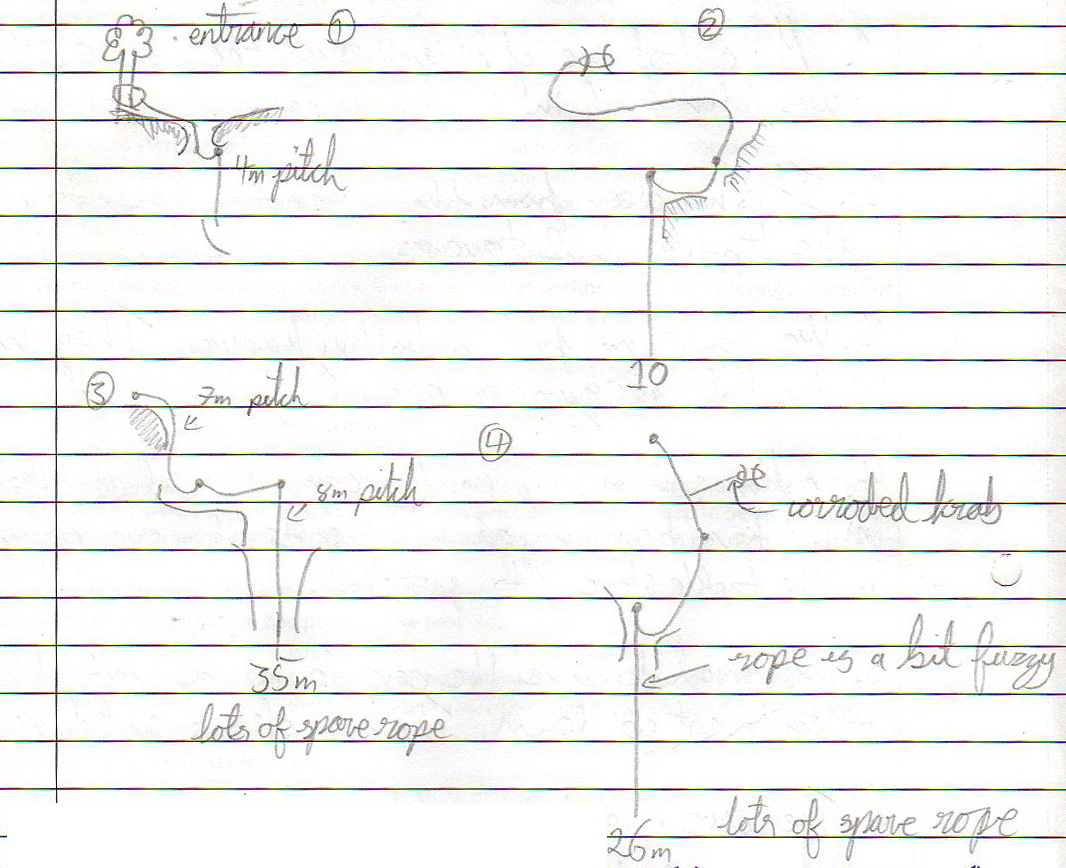 entrance ①
②
4m pitch
10
③
7m pitch
8m pitch
35m
lots of spare rope
④
corroded krab
rope is a bit fuzzy
26m
lots of spare rope